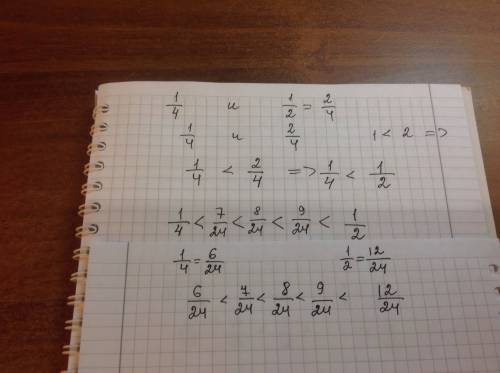 1/4 и 1/2 = 2/4
1/4 и 2/4 1 < 2 =>
1/4 < 2/4 => 1/4 < 1/2
1/4 < 7/24 < 8/24 < 9/24 < 1/2
1/4 = 6/24 1/2 = 12/24
6/24 < 7/24 < 8/24 < 9/24 < 12/24